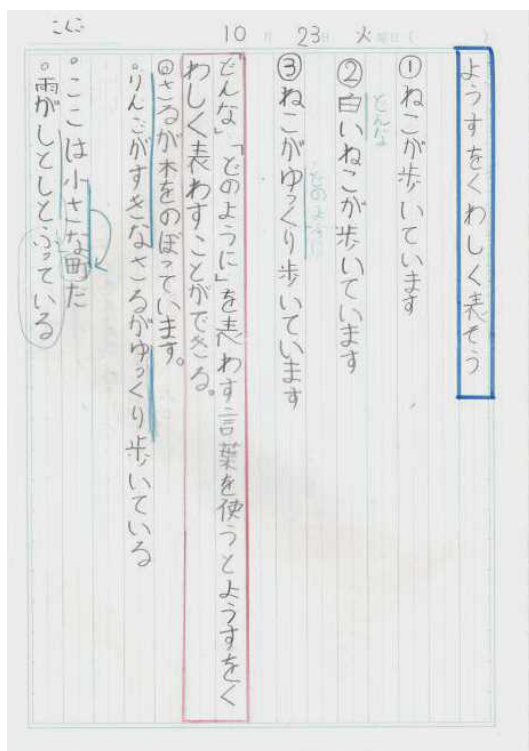 こくご
10月23日火曜日( )
ようすをくわしく表そう
①ねこが歩いています
どんな
②白いねこが歩いています
どのように
③ねこがゆっくり歩いています
「どんな」「どのように」を表わす言葉を使うとようすをく
わしく表わすことができる。
◎さるが木をのぼっています。
・りんごがすきなさるがゆっくり歩いている
・ここは小さな町だ
・雨がしとしとふっている